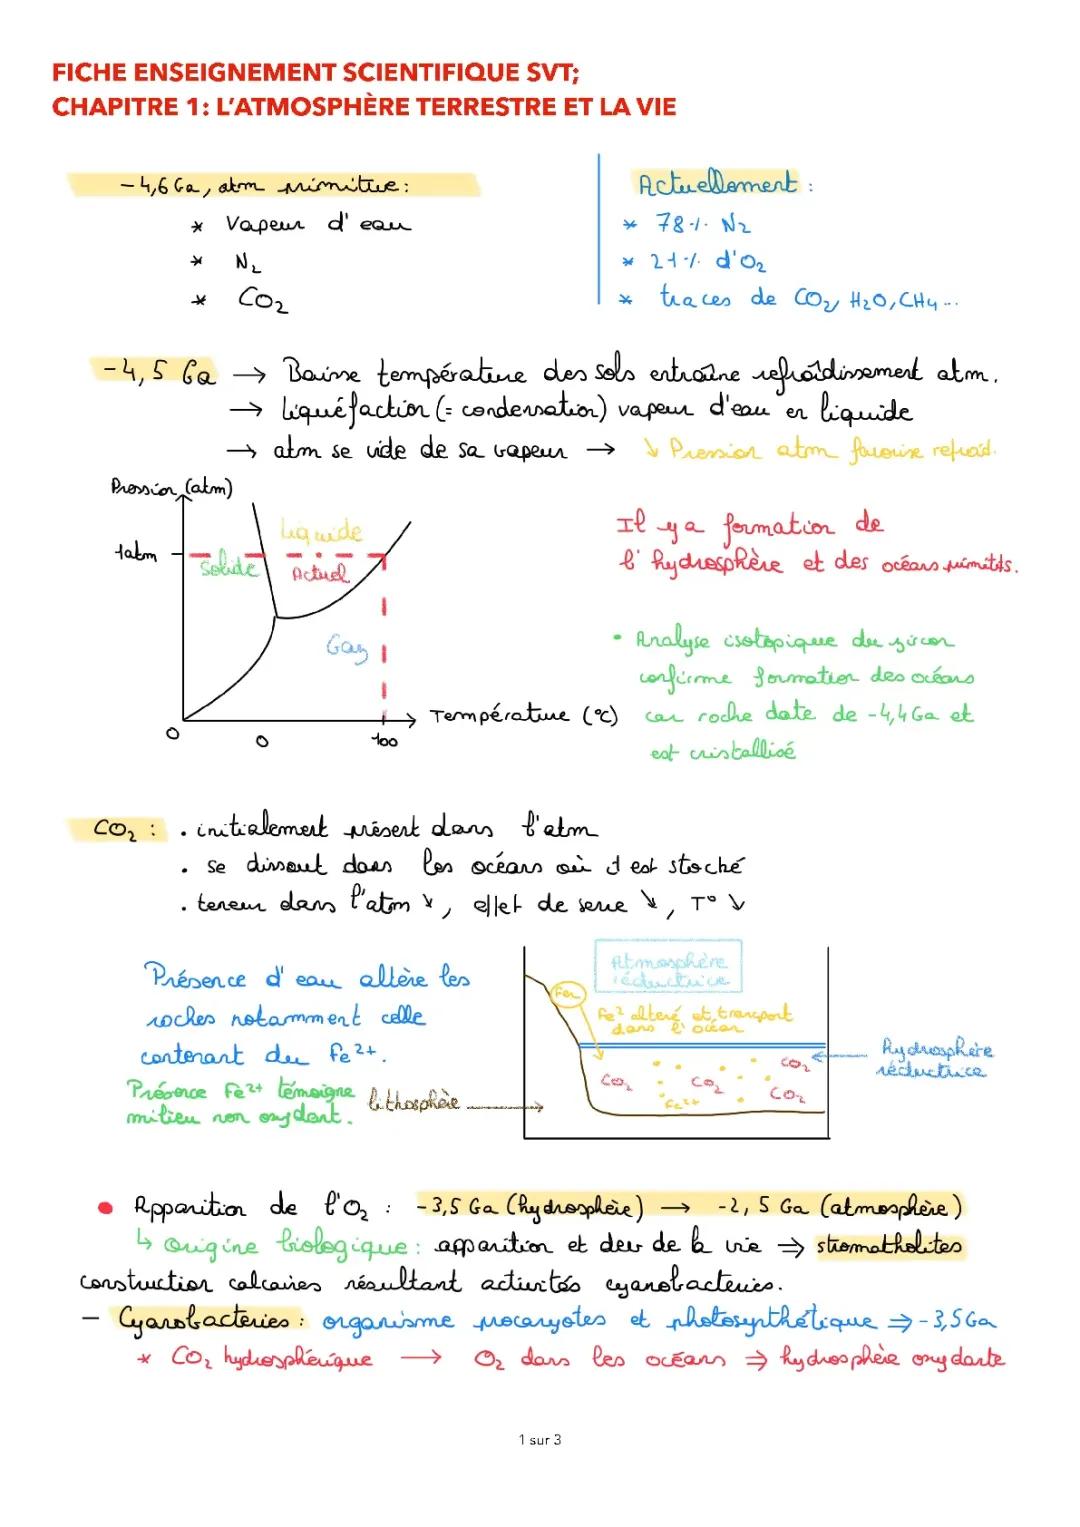 FICHE ENSEIGNEMENT SCIENTIFIQUE SVT;
CHAPITRE 1: L'ATMOSPHÈRE TERRESTRE ET LA VIE
-4,6 Ga, atm primitive:
* Vapeur d'eau
* N₂
* CO₂
Actuellement :
* 78% N₂
* 21% d'O₂
* traces de CO₂, H₂O, CH₄...
-4,5 Ga → Baisse température des sols entraîne refroidissement atm.
→ liquéfaction (= condensation) vapeur d'eau en liquide
→ atm se vide de sa vapeur → ↘ Pression atm favorise refroid.
Pression (atm)
1atm
Liquide
Solide
Actuel
Gaz
0
0
100
Température (°C)
Il y a formation de
l'hydrosphère et des océans primitifs.
• Analyse isotopique du zircon
confirme formation des océans
car roche date de -4,4 Ga et
est cristallisé
CO₂ : . initialement présent dans l'atm
. se dissout dans les océans où il est stocké
. teneur dans l'atm ↘, effet de serre ↘, T° ↘
Présence d'eau altère les
roches notamment celle
contenant du Fe²⁺.
Présence Fe²⁺ témoigne
milieu non oxydant.
lithosphère
Atmosphère
réductrice
Fer
Fe² altéré et transport
dans l'océan
CO₂
CO₂
CO₂
CO₂
Fe²⁺
Hydrosphère
réductrice
• Apparition de l'O₂ : -3,5 Ga (hydrosphère) → -2,5 Ga (atmosphère)
↳ origine biologique : apparition et dev de la vie ⇒ stromatholites
construction calcaires résultant activités cyanobacteries.
- Cyanobactéries : organisme procaryotes et photosynthétique ⇒ -3,5 Ga
* CO₂ hydrosphérique → O₂ dans les océans ⇒ hydrosphère oxydante
1 sur 3